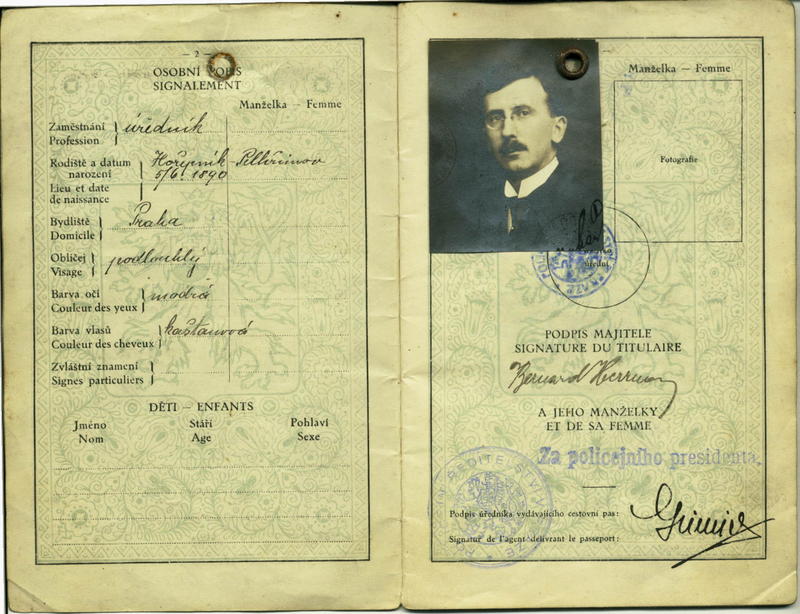 — 2 —
OSOBNÍ POPIS
SIGNALEMENT
Manželka – Femme
Zaměstnání
Profession
úředník
Rodiště a datum
narození
Lieu et date
de naissance
Hořepník
5/6 1890
Bydliště
Domicile
Praha
Obličej
Visage
podlouhlý
Barva očí
Couleur des yeux
modrá
Barva vlasů
Couleur des cheveux
kaštanová
Zvláštní znamení
Signes particuliers
DĚTI – ENFANTS
Jméno Stáří Pohlaví
Nom Age Sexe
Manželka – Femme
Fotografie
úřední
PODPIS MAJITELE
SIGNATURE DU TITULAIRE
Bernard Herrman
A JEHO MANŽELKY
ET DE SA FEMME
Za policejního presidenta
Podpis úředníka vydávajícího cestovní pas:
Signatur de l'agent délivrant le passeport: